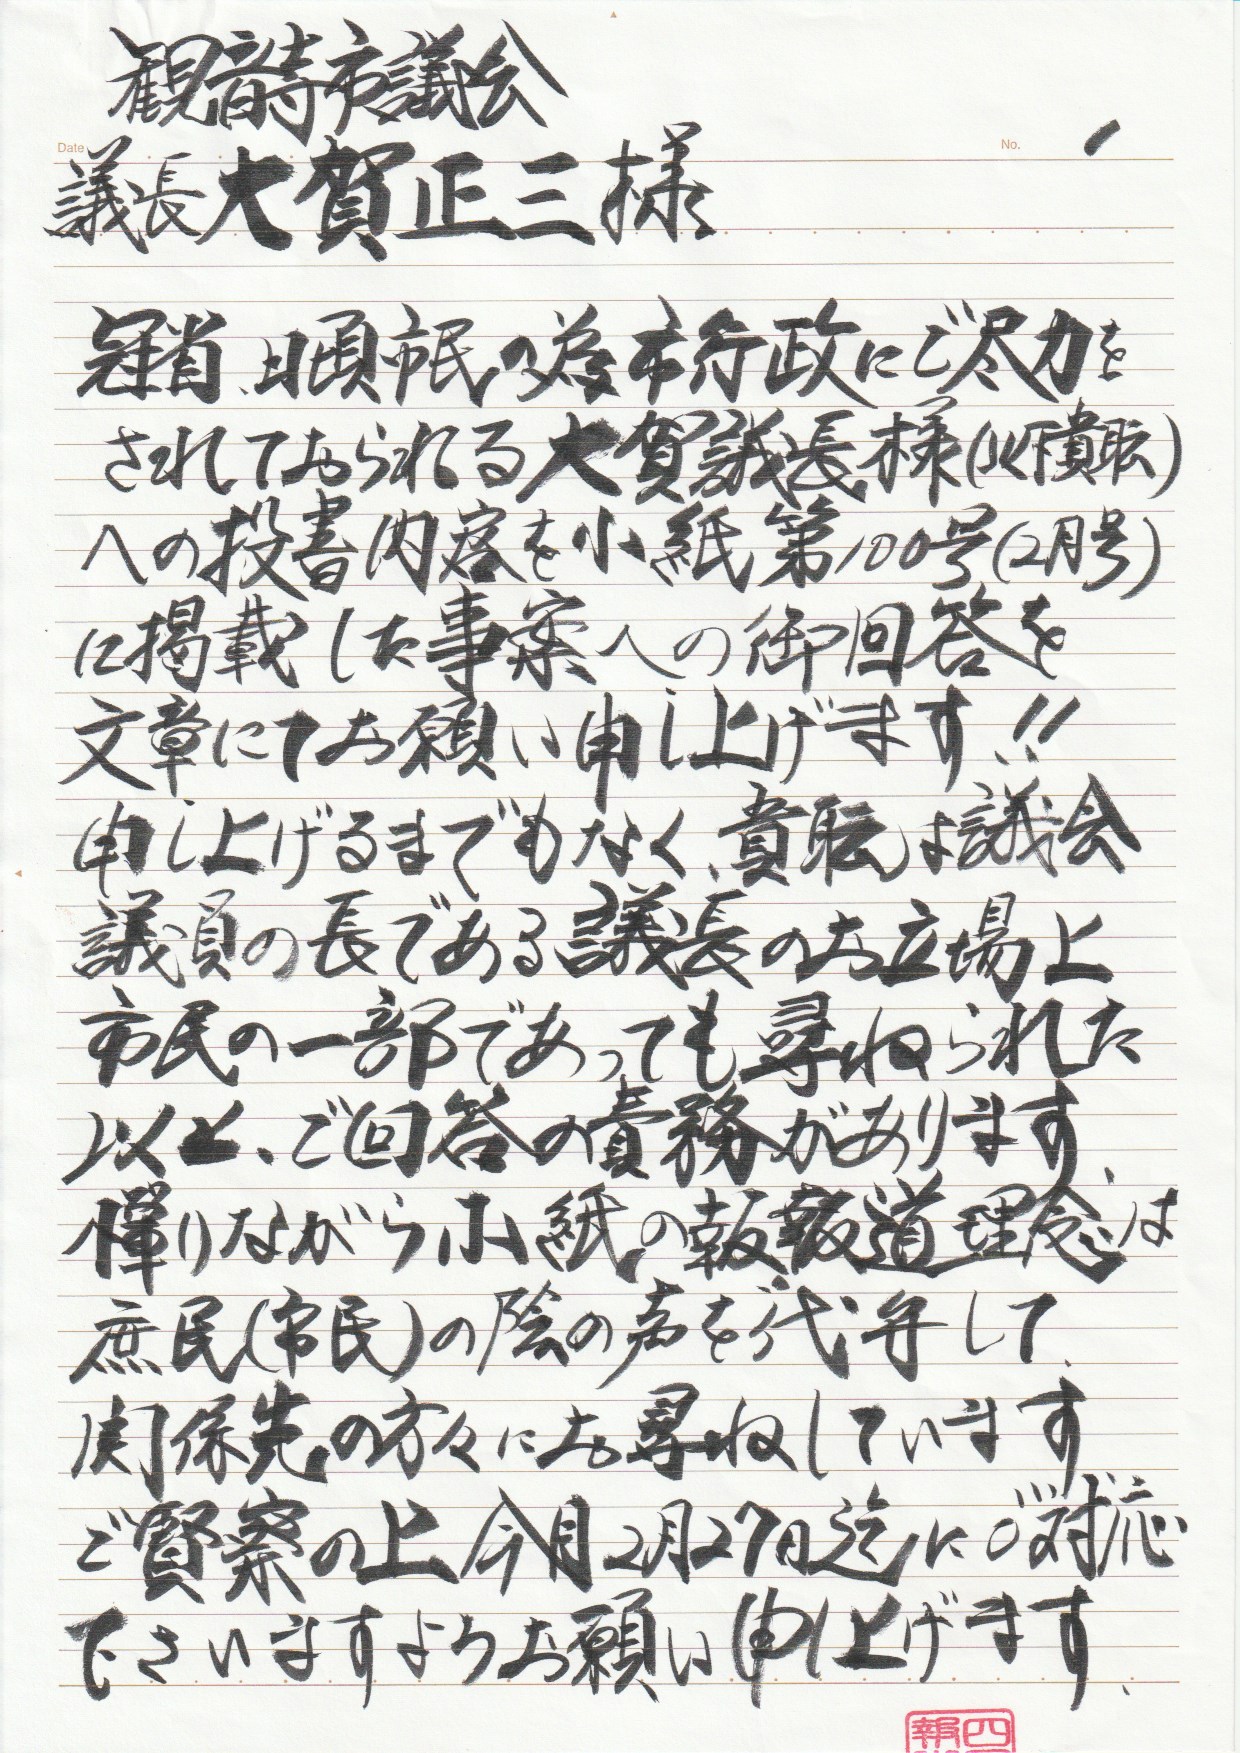 観音寺市議会
Date
No. 1
議長大賀正三様
冠省、日頃市民の為市行政にご尽力を
されておられる大賀議長様(以下貴職)
への投書内容を小紙第100号(2月号)
に掲載した事案への御回答を
文章にてお願い申し上げます!!
申し上げるまでもなく、貴職は議会
議員の長である議長のお立場上
市民の一部であっても尋ねられた
以上、ご回答の責務があります、
憚りながら小紙の報報道理念は
庶民(市民)の陰の声を代弁して、
関係先の方々にお尋ねしています
ご賢察の上今月2月27日迄にご対応
下さいますようお願い申し上げます、
四
報